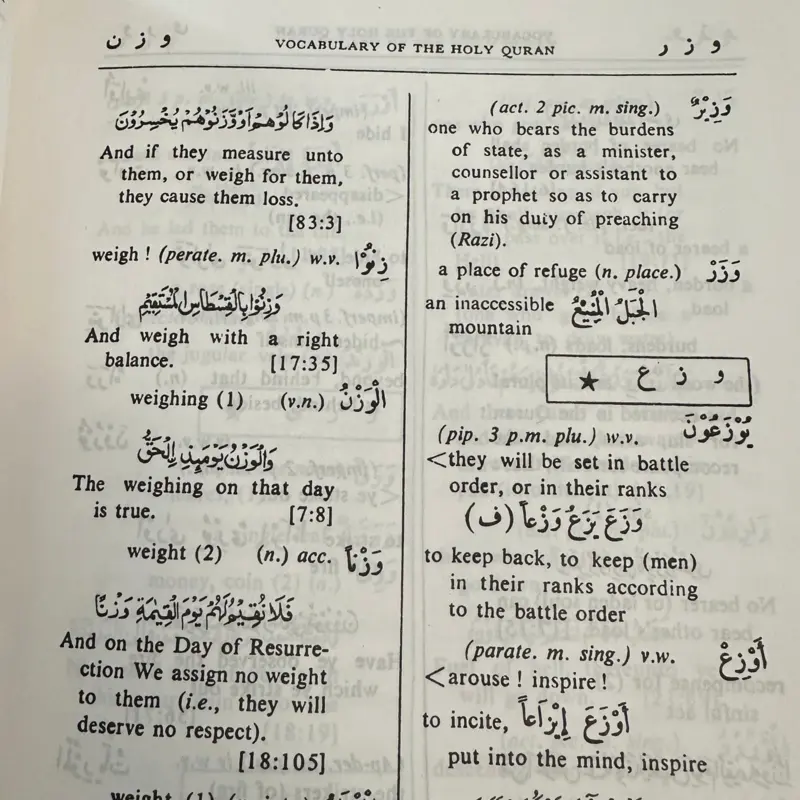 و ز ن VOCABULARY OF THE HOLY QURAN و ز ر
(act. 2 pic. m. sing.) وَزِيْرٌ
one who bears the burdens
of state, as a minister,
counsellor or assistant to
a prophet so as to carry
on his duty of preaching
(Razi).
a place of refuge (n. place.) وَزَرَ
an inaccessible الْجَبَلُ الْمَنِيْعُ
mountain
★ و ز ع
(pip. 3 p.m. plu.) w.v. يُوْزَعُوْنَ
<they will be set in battle
order, or in their ranks
وَزَعَ يَزَعُ وَزْعاً (ف)
to keep back, to keep (men)
in their ranks according
to the battle order
(parate. m. sing.) v.w. أَوْزِعْ
<arouse ! inspire !
to incite, أَوْزَعَ إِيْزَاعاً
put into the mind, inspire
وَاِذَا كَالُوْهُمْ اَوْ وَّزَنُوْهُمْ يُخْسِرُوْنَ
And if they measure unto
them, or weigh for them,
they cause them loss.
[83:3]
weigh ! (perate. m. plu.) w.v. زِنُوْا
وَزِنُوْا بِالْقِسْطَاسِ الْمُسْتَقِيْمِ
And weigh with a right
balance. [17:35]
weighing (1) (v.n.) الْوَزْنُ
وَالْوَزْنُ يَوْمَئِذِ اِلْحَقُّ
The weighing on that day
is true. [7:8]
weight (2) (n.) acc. وَزْناً
فَلَا نُقِيْمُ لَهُمْ يَوْمَ الْقِيٰمَةِ وَزْنًا
And on the Day of Resurre-
ction We assign no weight
to them (i.e., they will
deserve no respect).
[18:105]